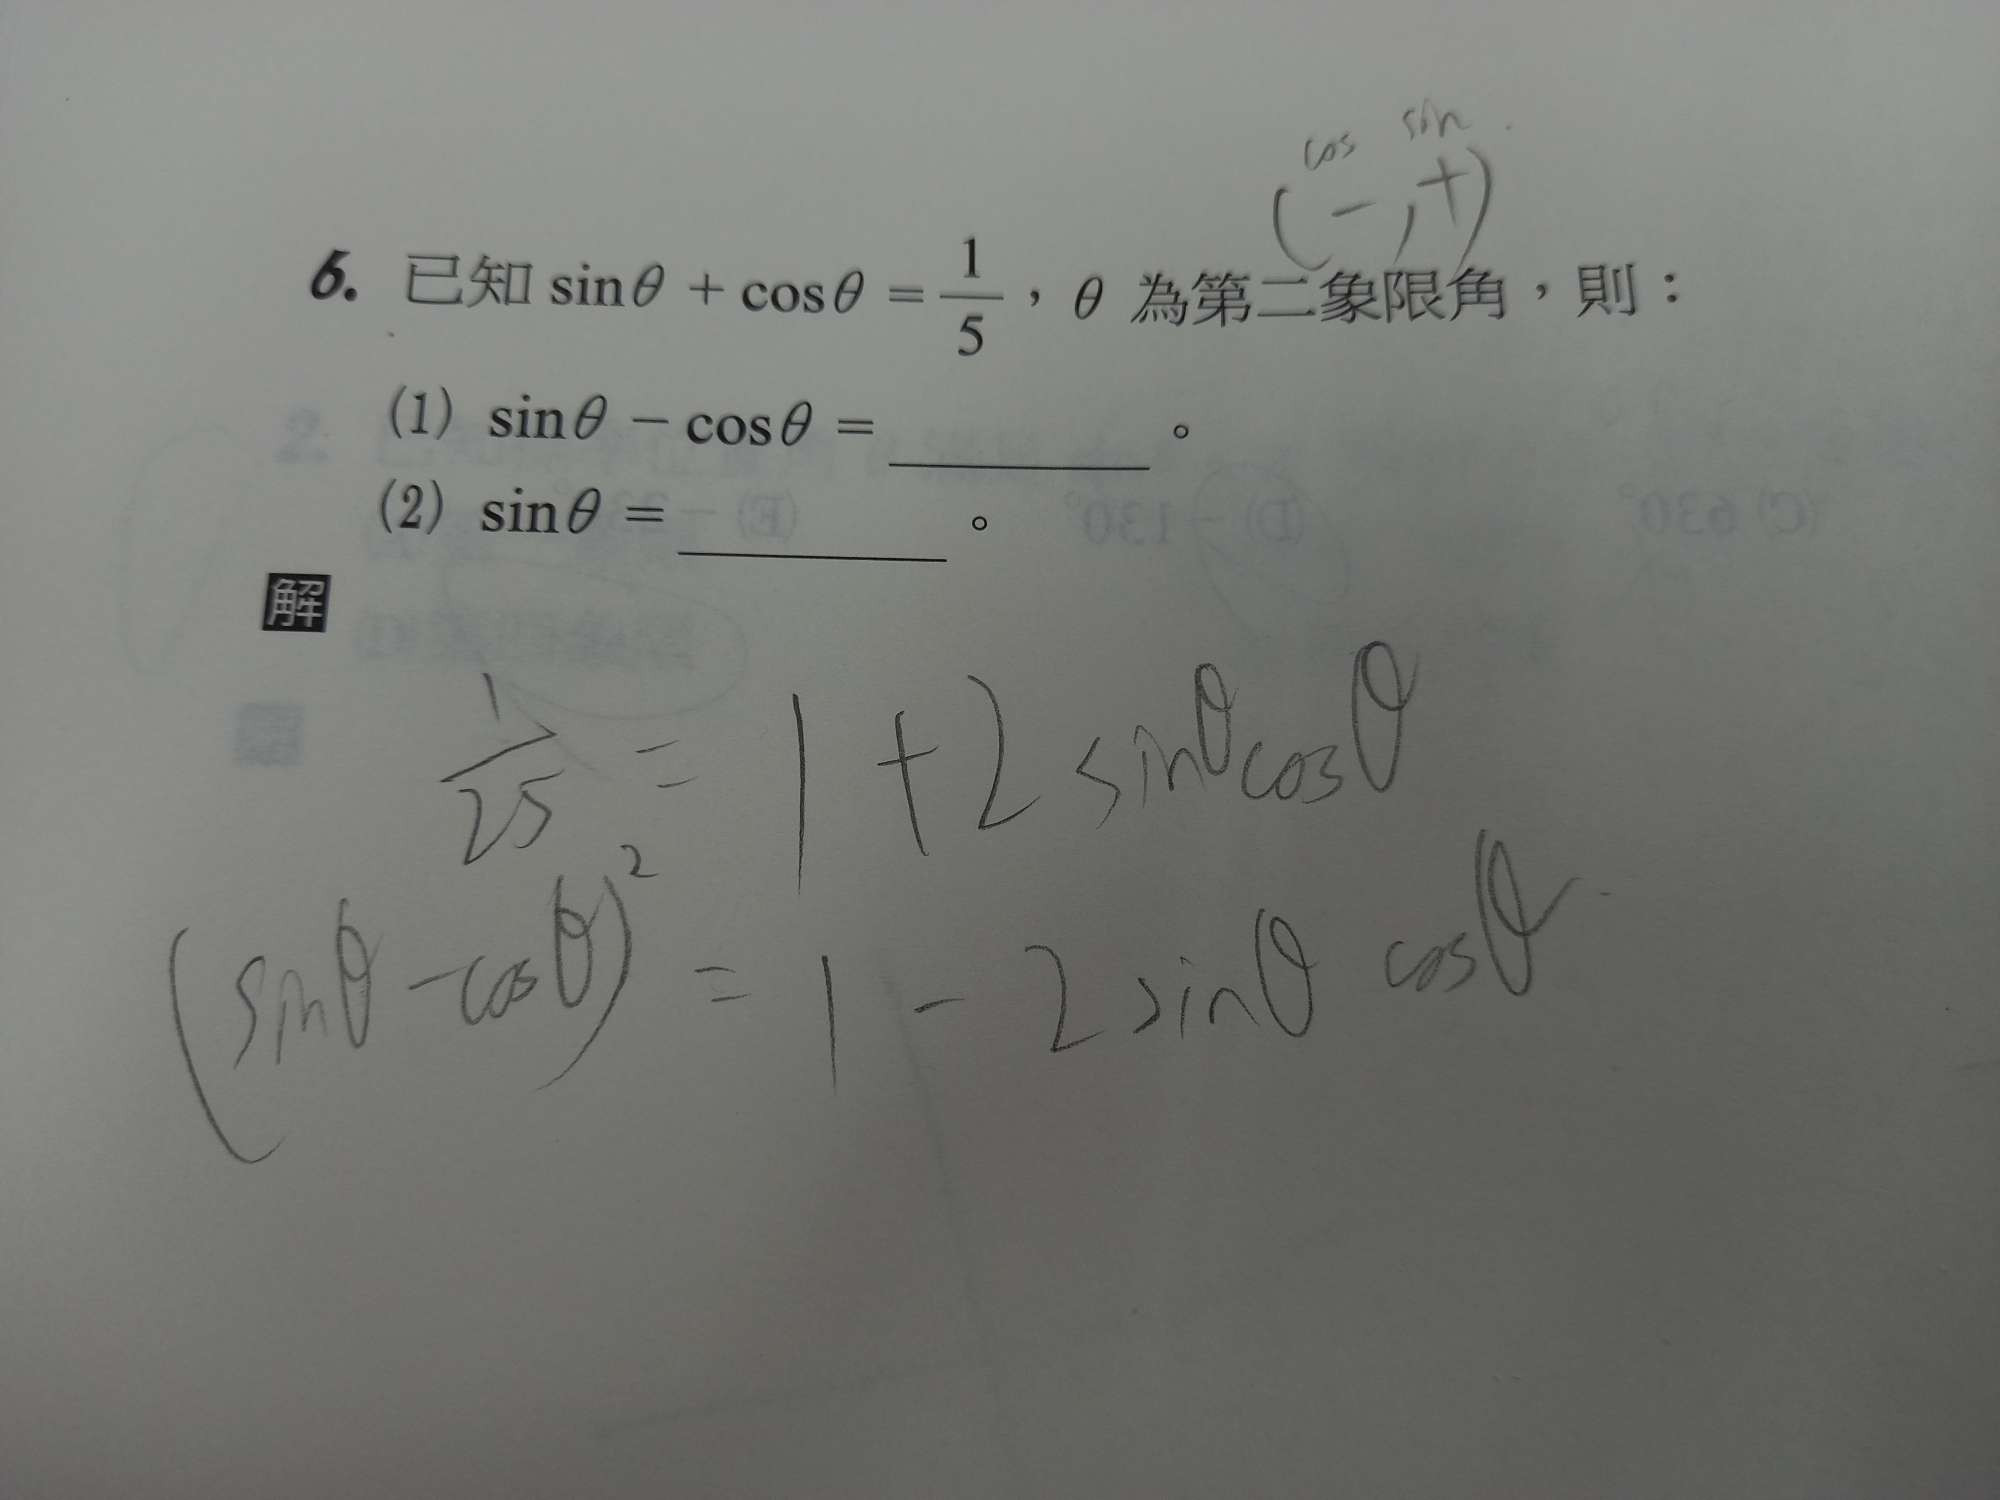 cos sin
(-,+)
6. 已知 sinθ + cosθ = 1/5，θ 為第二象限角，則：
(1) sinθ − cosθ = ________。
(2) sinθ = ________。
解
1/25 = 1 + 2 sinθ cosθ
(sinθ - cosθ)² = 1 - 2 sinθ cosθ